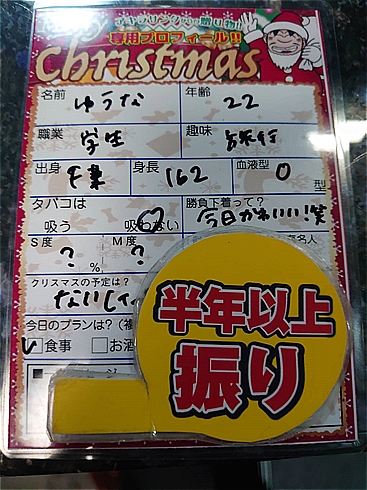 専用プロフィール!!
Christmas
名前 ゆうな 年齢 22
職業 学生 趣味 旅行
出身 千葉 身長 162 血液型 O 型
タバコは
吸う 吸わない
勝負下着って?
今日かわいい!笑
S度 ? % M度 ?
クリスマスの予定は?
ないしょ
今日のプランは?(複
食事 お酒
半年以上
振り